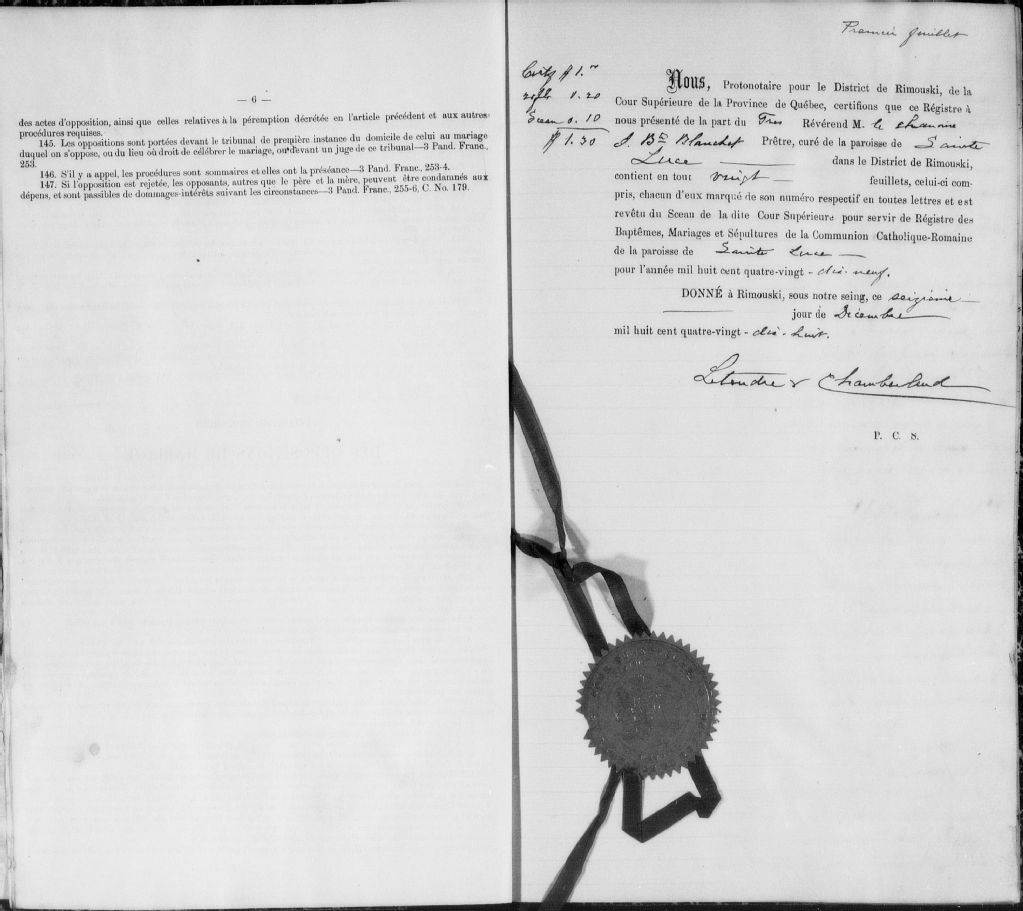 — 6 —
des actes d'opposition, ainsi que celles relatives à la péremption décrétée en l'article précédent et aux autres
procédures requises.
145. Les oppositions sont portées devant le tribunal de première instance du domicile de celui au mariage
duquel on s'oppose, ou du lieu où droit de célébrer le mariage, ou devant un juge de ce tribunal—3 Pand. Franc.,
253.
146. S'il y a appel, les procédures sont sommaires et elles ont la préséance—3 Pand. Franc., 253-4.
147. Si l'opposition est rejetée, les opposants, autres que le père et la mère, peuvent être condamnés aux
dépens, et sont passibles de dommages-intérêts suivant les circonstances—3 Pand. Franc., 255-6, C. No. 179.
Premier feuillet
Certf $ 1.—
0.20
Sceau 0.10
$ 1.30
Nous, Protonotaire pour le District de Rimouski, de la
Cour Supérieure de la Province de Québec, certifions que ce Régistre à
nous présenté de la part du Très Révérend M. le chanoine
J. Bte Blanchet Prêtre, curé de la paroisse de Sainte
Luce — dans le District de Rimouski,
contient en tout vingt — feuillets, celui-ci com-
pris, chacun d'eux marqué de son numéro respectif en toutes lettres et est
revêtu du Sceau de la dite Cour Supérieure pour servir de Régistre des
Baptêmes, Mariages et Sépultures de la Communion Catholique-Romaine
de la paroisse de Sainte Luce —
pour l'année mil huit cent quatre-vingt-dix-neuf.
DONNÉ à Rimouski, sous notre seing, ce seizième
— jour de Décembre
mil huit cent quatre-vingt-dix-huit.
Letendre & Chamberland
P. C. S.